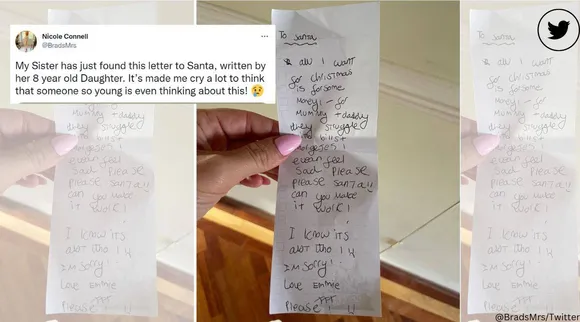 Nicole Connell
@BradsMrs
My Sister has just found this letter to Santa, written by
her 8 year old Daughter. It's made me cry a lot to think
that someone so young is even thinking about this! 😢
To Santa
all I want
for christmas
is for some
money! for
mummy + daddy
they struggle
bills +
I
evean feel
sad Please
Please santa!!
can you make
it work!
I know its
a lot tho!
I'm sorry!
Love
Please!
@BradsMrs/Twitter